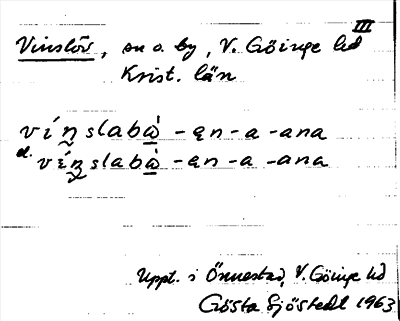 III
Vinslöv, sn o. by, V. Göinge hd
Krist. län
vín̰slabò̱ -ęn -a -ana
el. vín̰slabà̱ -ęn -a -ana
Uppt. i Önnestad, V. Göinge hd
Gösta Sjöstedt 1963